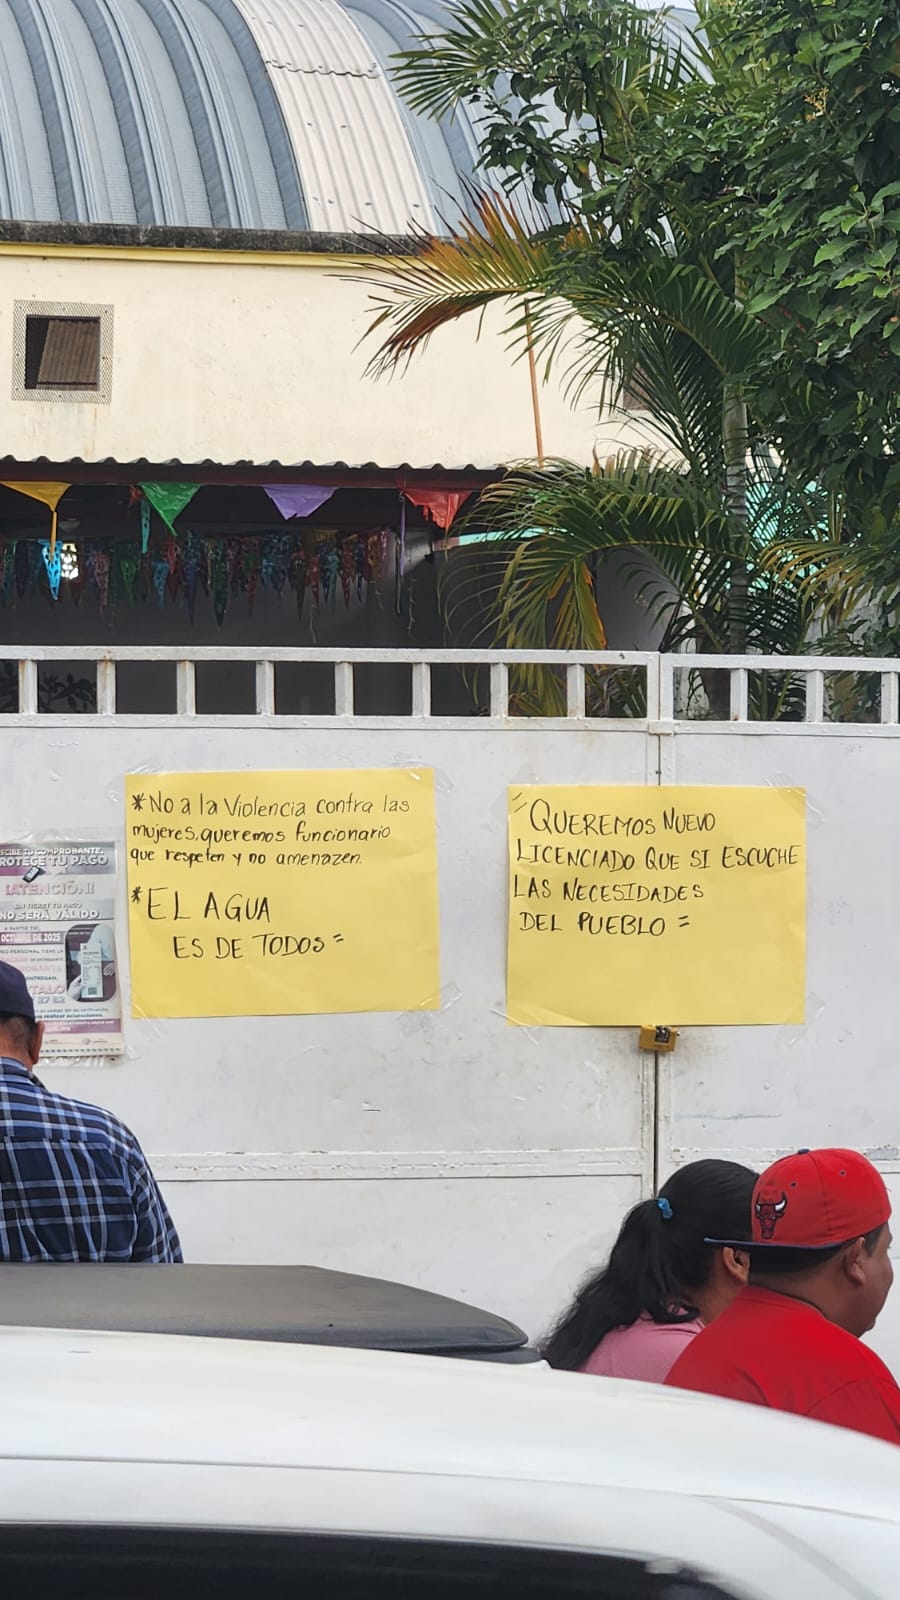 *No a la Violencia contra las
mujeres, queremos funcionario
que respeten y no amenazen.
*EL AGUA
ES DE TODOS=
=QUEREMOS NUEVO
LICENCIADO QUE SI ESCUCHE
LAS NECESIDADES
DEL PUEBLO=
RECIBE TU COMPROBANTE,
PROTEGE TU PAGO
¡ATENCIÓN!
SIN TICKET TU PAGO
NO SERÁ VÁLIDO
A PARTIR DEL
OCTUBRE DE 2025